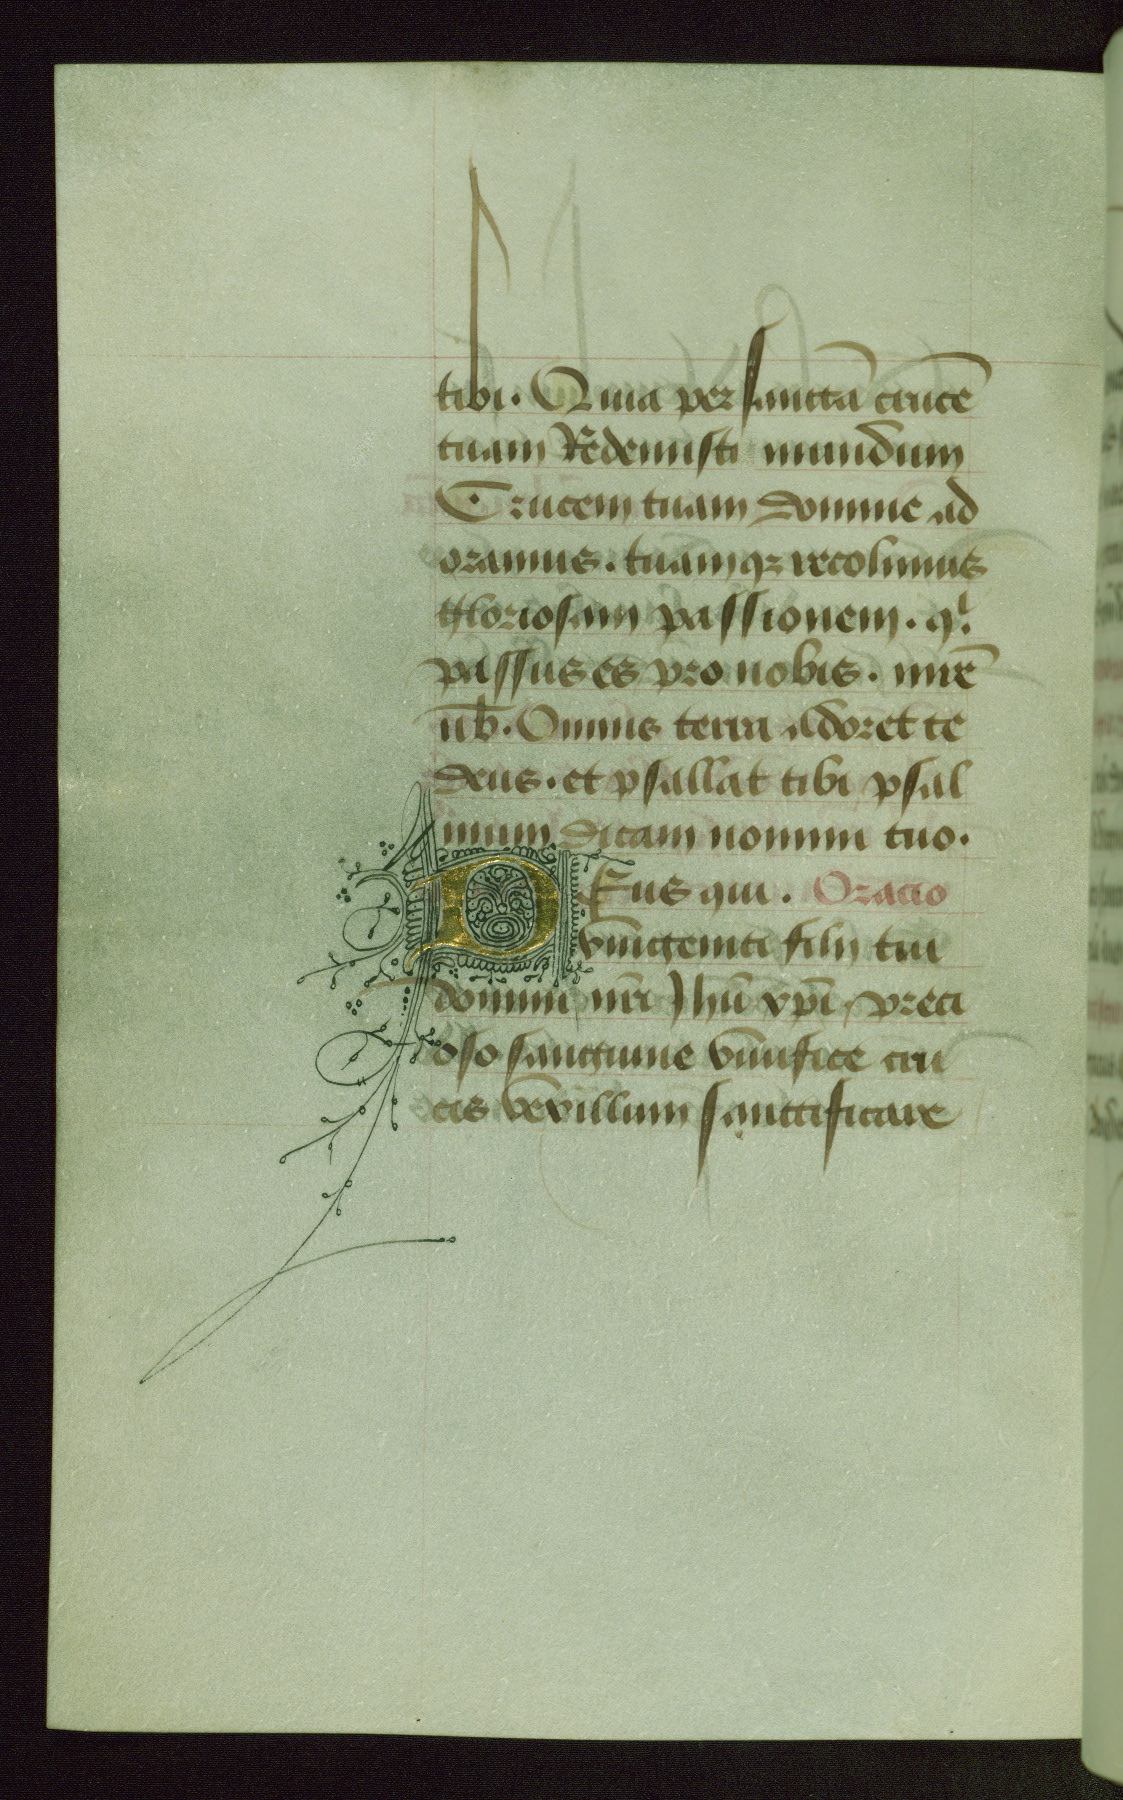 tibi. Quia per sanctā crucē
tuam Redemisti mundum
Crucem tuam domine ad
oramus. tuamqꝫ recolimus
Gloriosam passionem. qͥ
passus es pro nobis. mirē
nb̄. Omnis terra adoret te
deus. et psallat tibi psal
mum dicam nomini tuo.
DEus qui. Oracio
vnigeniti filij tui
domini nr̄i Jhū xp̄i preci
oso sanguine viuifice cru
cis vexillum sanctificare